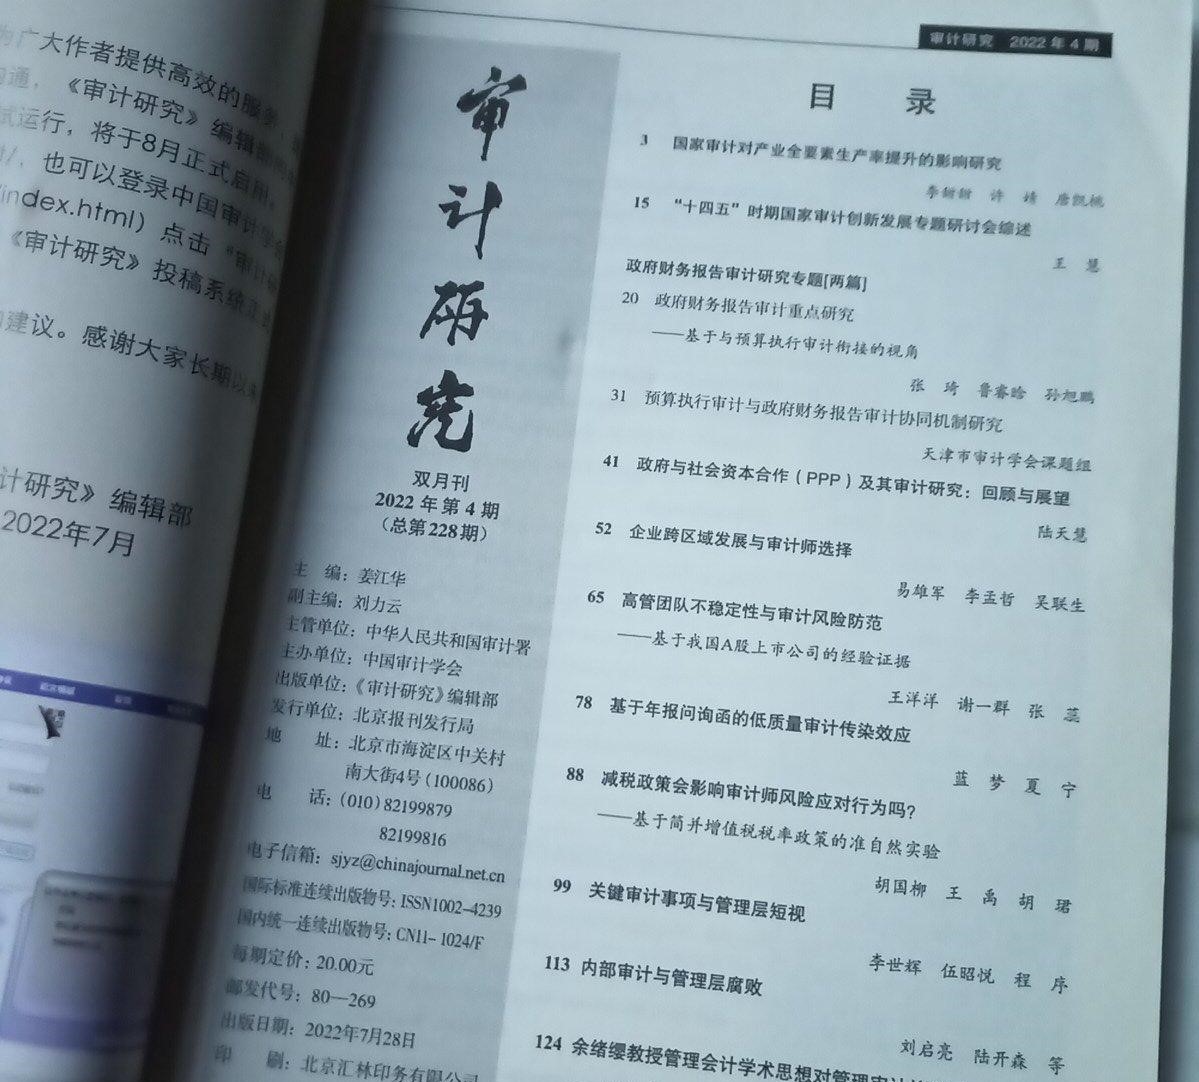 为广大作者提供高效的服务，
沟通，《审计研究》编辑部
试运行，将于8月正式启用。
也可以登录中国审计学会
/index.html）点击“审计研
《审计研究》投稿系统
建议。感谢大家长期以来
计研究》编辑部
2022年7月
审计研究
双月刊
2022年第4期
（总第228期）
主 编：姜江华
副主编：刘力云
主管单位：中华人民共和国审计署
主办单位：中国审计学会
出版单位：《审计研究》编辑部
发行单位：北京报刊发行局
地 址：北京市海淀区中关村
南大街4号（100086）
电 话：（010）82199879
82199816
电子信箱：sjyz@chinajournal.net.cn
国际标准连续出版物号：ISSN1002-4239
国内统一连续出版物号：CN11-1024/F
每期定价：20.00元
邮发代号：80—269
出版日期：2022年7月28日
印 刷：北京汇林印务有限公司
审计研究 2022年4期
目 录
3 国家审计对产业全要素生产率提升的影响研究
李甜甜 许 婧 唐凯桃
15 “十四五”时期国家审计创新发展专题研讨会综述
王 慧
政府财务报告审计研究专题[两篇]
20 政府财务报告审计重点研究
——基于与预算执行审计衔接的视角
张 琦 鲁睿晗 孙旭鹏
31 预算执行审计与政府财务报告审计协同机制研究
天津市审计学会课题组
41 政府与社会资本合作（PPP）及其审计研究：回顾与展望
陆天慧
52 企业跨区域发展与审计师选择
易雄军 李孟哲 吴联生
65 高管团队不稳定性与审计风险防范
——基于我国A股上市公司的经验证据
王洋洋 谢一群 张 蕊
78 基于年报问询函的低质量审计传染效应
蓝 梦 夏 宁
88 减税政策会影响审计师风险应对行为吗？
——基于简并增值税税率政策的准自然实验
胡国柳 王 禹 胡 珺
99 关键审计事项与管理层短视
李世辉 伍昭悦 程 序
113 内部审计与管理层腐败
刘启亮 陆开森 等
124 余绪缨教授管理会计学术思想对管理审计